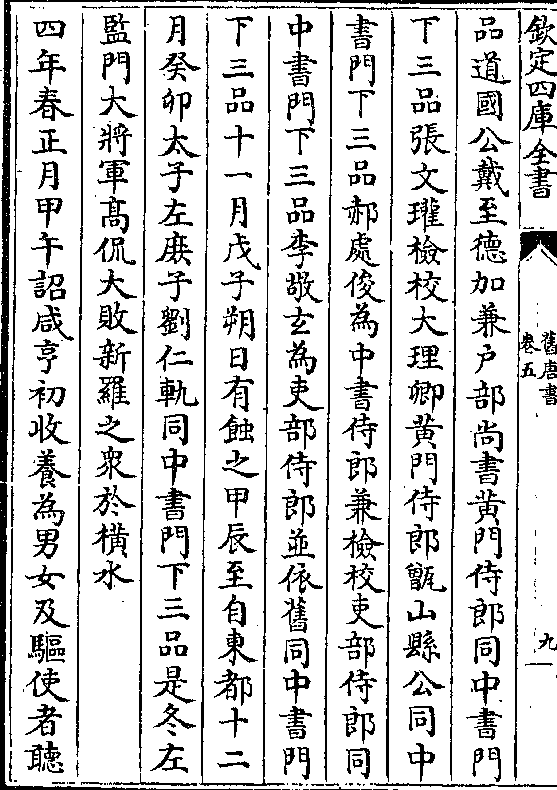 欽定四庫全書
舊唐書
卷五
九
品道國公戴至德加兼户部尚書黄門侍郎同中書門
下三品張文瓘檢校大理卿黄門侍郎甑山縣公同中
書門下三品郝處俊為中書侍郎兼檢校吏部侍郎同
中書門下三品李敬玄為吏部侍郎並依舊同中書門
下三品十一月戊子朔日有蝕之甲辰至自東都十二
月癸卯太子左庻子劉仁軌同中書門下三品是冬左
監門大將軍髙侃大敗新羅之衆於横水
四年春正月甲午詔咸亨初收養為男女及驅使者聽